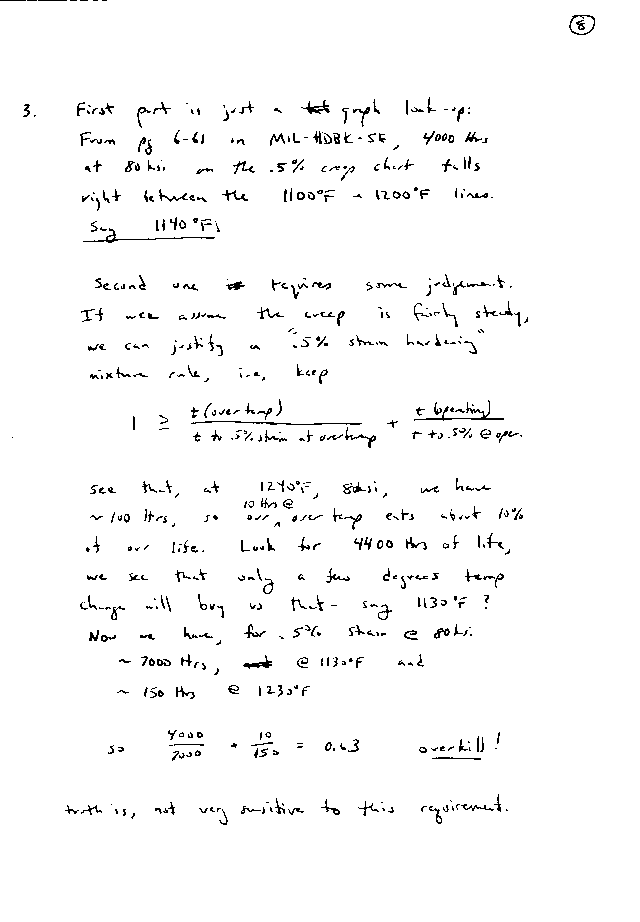 8
3. First part is just a graph look-up:
From pg 6-61 in MIL-HDBK-5E, 4000 Hrs
at 80 ksi on the .5% creep chart falls
right between the 1100°F + 1200°F lines.
Say 1140°F!
Second one requires some judgement.
If we assume the creep is fairly steady,
we can justify a ".5% strain hardening"
mixture rule, i.e, keep
1 ≥ t(overtemp) / t to .5% strain at overtemp + t(operating) / t to .5% @ oper.
See that, at 1240°F, 80ksi, we have
~100 Hrs, so our 10 Hrs @ over temp eats about 10%
of our life. Look for 4400 Hrs of life,
we see that only a few degrees temp
change will buy us that - say 1130°F?
Now we have, for .5% strain @ 80ksi
~ 7000 Hrs, @ 1130°F and
~ 150 Hrs @ 1230°F
so 4000/7000 + 10/150 = 0.63 overkill!
truth is, not very sensitive to this requirement.